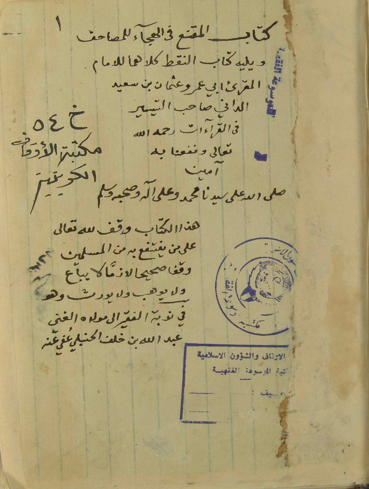 ١
كتاب المقنع في الهجاء للمصاحف
ويليه كتاب النقط كلاهما للامام
المقرئ ابي عمرو عثمان بن سعيد
الداني صاحب التيسير
في القراآت رحمه الله
تعالى ونفعنا به
آمين
صلى الله على سيدنا محمد وعلى آله وصحبه وسلم
خ ٥٤
مكتبة الأوقاف
الكويتية
هذا الكتاب وقف لله تعالى
على من ينتفع به من المسلمين
وقفا صحيحا لازما لا يباع
ولا يوهب ولا يورث وهو
في نوبة الفقير الى مولاه الغني
عبد الله بن خلف الحنبلي عفي عنه
الموسوعة الفقهية
الاوقاف والشؤون الاسلامية
الموسوعة الفقهية